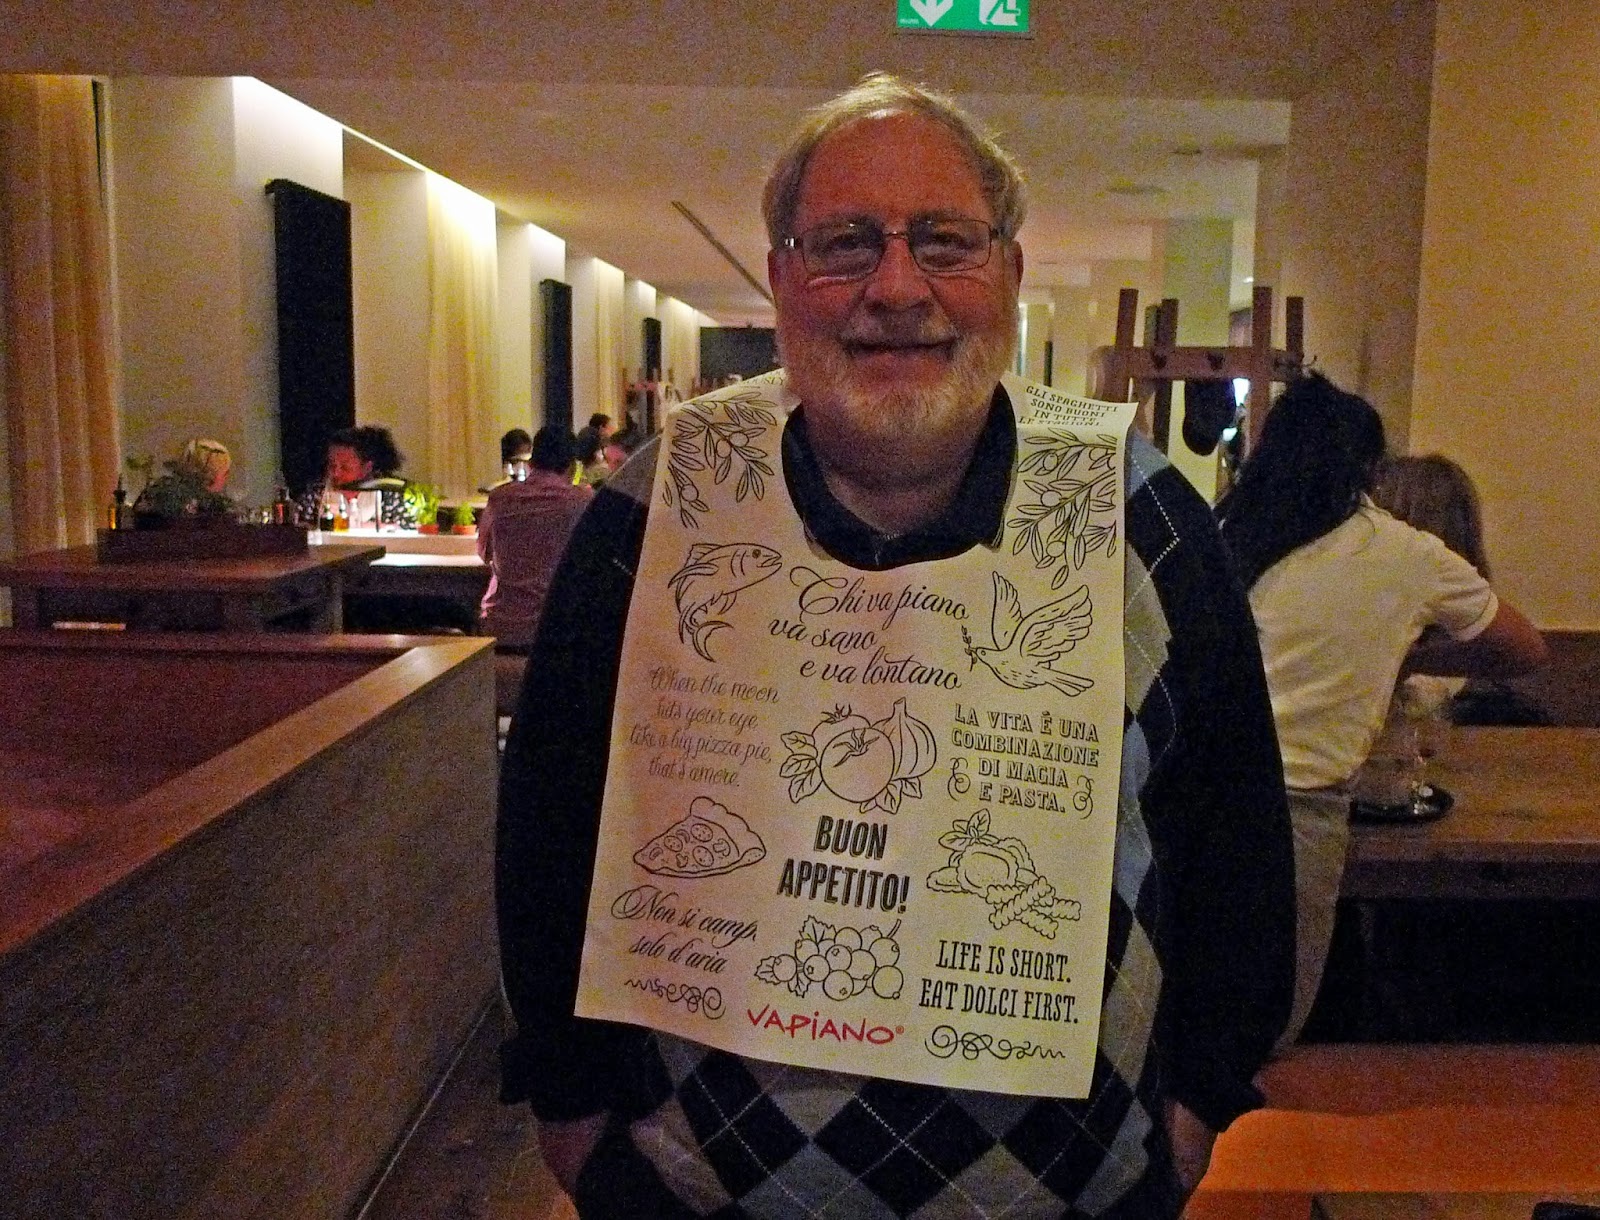 GLI SPAGHETTI
SONO BUONI
IN TUTTE
LE STAGIONI.
Chi va piano
va sano
e va lontano
When the moon
hits your eye
like a big pizza pie,
that's amore.
LA VITA É UNA
COMBINAZIONE
DI MAGIA
E PASTA.
BUON
APPETITO!
Non si camp
solo d'aria
LIFE IS SHORT.
EAT DOLCI FIRST.
VAPIANO®